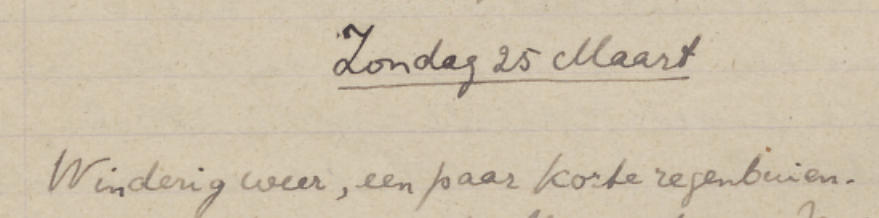 Zondag 25 Maart
Winderig weer, een paar korte regenbuien.